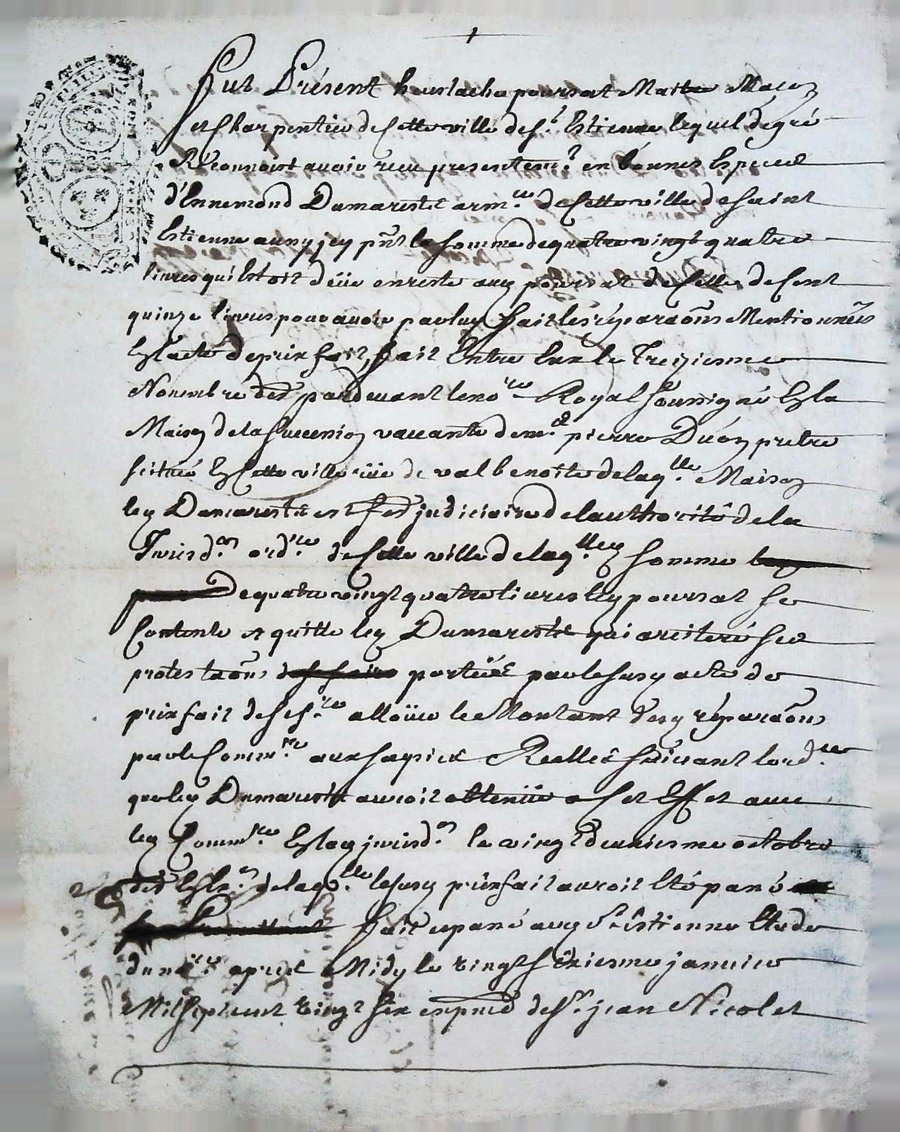 Fut Présent heustache poursat Maitre Maçon
et Charpentier de cette ville de St Estienne lequel de gré
Reconnoist avoir receu presentemt en bonnes Especes
d'Ennemond Damareste armre de cette ville de saint
Estienne aussy icy pnt la somme de quatre vingt quatre
livres qui Estoit deüe en reste aud poursat de celle de Cent
quinze livres pour avoir par luy fait les réparaons Mentionnées
En l'acte de prix fait, fait Entre Eux le Treizieme
Novembre der pardevant le nore Royal soussigné En la
Maison de la succession vacante de mre pierre Duon prêtre
scituée En cette ville rüe de valbenoite de laqlle Maison
led Damareste est judiciaire de l'authorité de la
Jurisdon ordre de cette ville de laqlle somme
De quatre vingt quatre livres led poursat se
Contente et quitte led Damareste qui a reiteré ses
protestaons portées par le susd acte de
prixfait de se alloüer le Montant desd réparaons
par le Commre aux saysies Réelles suivant l'ordce
que led Damareste auroit obtenüe a cet Effet avec
led Commre En lad jurisdon le vingt deuxiesme octobre
der de laqlle le susd prixfait auroit Eté passé
fait et passé aud St Estienne Etude
du nore apres Midy le vingt sixiesme janvier
Mil sept cent vingt six en pnce de Sr jean Nicolet